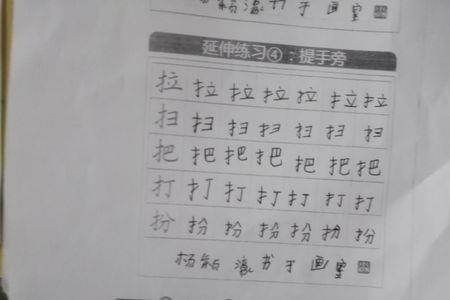 书于画室
延伸练习④：提手旁
拉拉拉拉拉拉拉
扫扫扫扫扫扫扫
把把把把把把把
打打打打打打打
扮扮扮扮扮扮扮
杨 书于画室